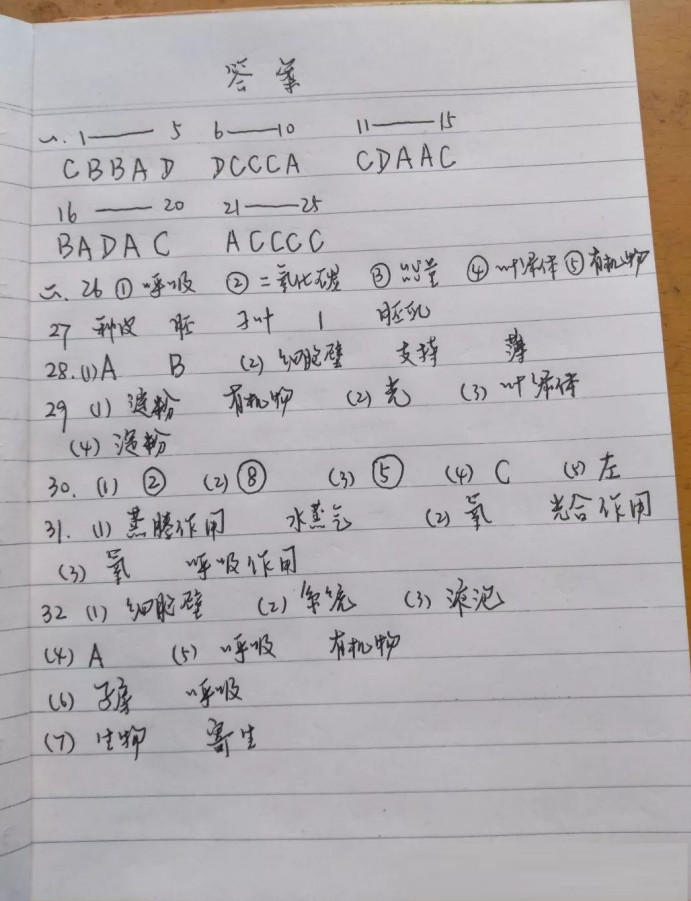 答案
一. 1——5 6——10 11——15
CBBAD DCCCA CDAAC
16——20 21——25
BADAC ACCCC
二. 26 ① 呼吸 ② 二氧化碳 ③ 能量 ④ 叶绿体 ⑤ 有机物
27 种皮 胚 子叶 1 胚乳
28. (1) A B (2) 细胞壁 支持 薄
29 (1) 淀粉 有机物 (2) 光 (3) 叶绿体
(4) 淀粉
30. (1) ② (2) ⑧ (3) ⑤ (4) C (5) 左
31. (1) 蒸腾作用 水蒸气 (2) 氧 光合作用
(3) 氧 呼吸作用
32 (1) 细胞壁 (2) 系统 (3) 液泡
(4) A (5) 呼吸 有机物
(6) 子房 呼吸
(7) 生物 寄生